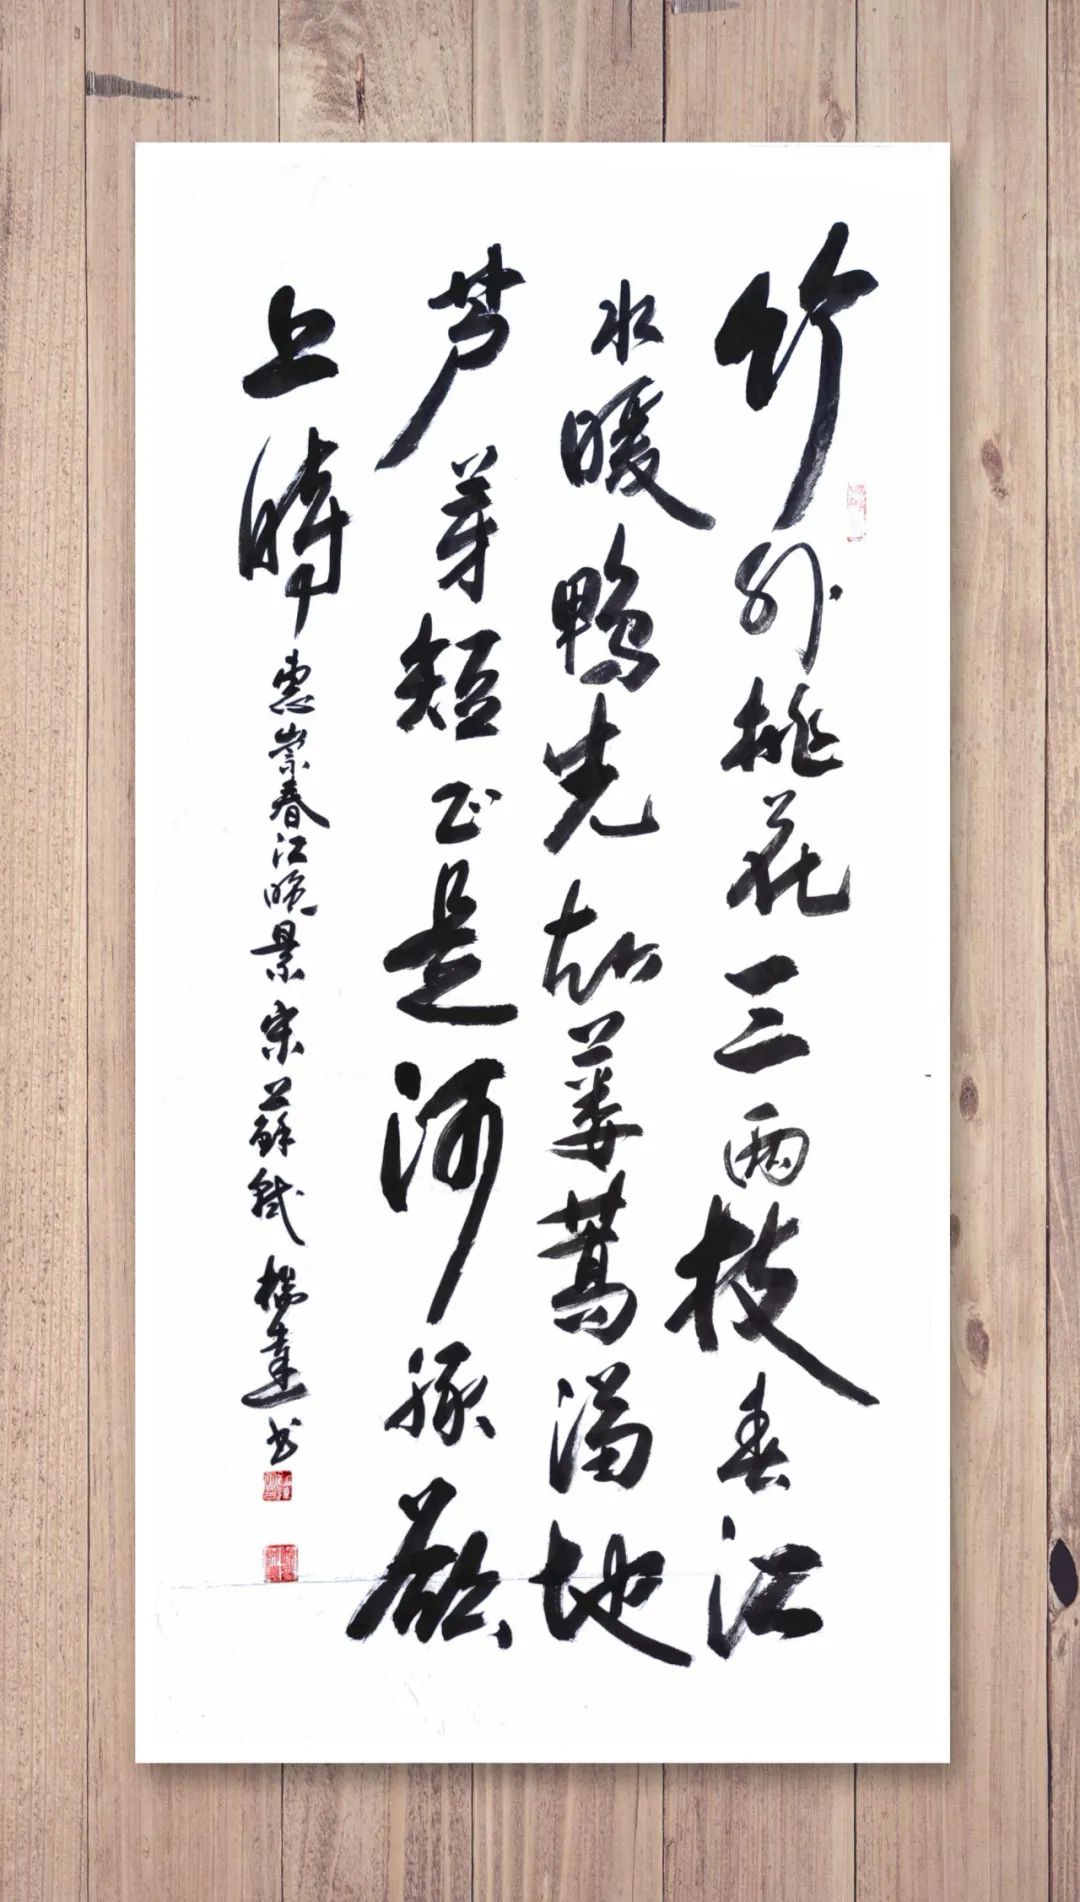 竹外桃花三两枝春江
水暖鸭先知蒌蒿满地
芦芽短正是河豚欲
上時惠崇春江晚景宋蘇軾楊達书